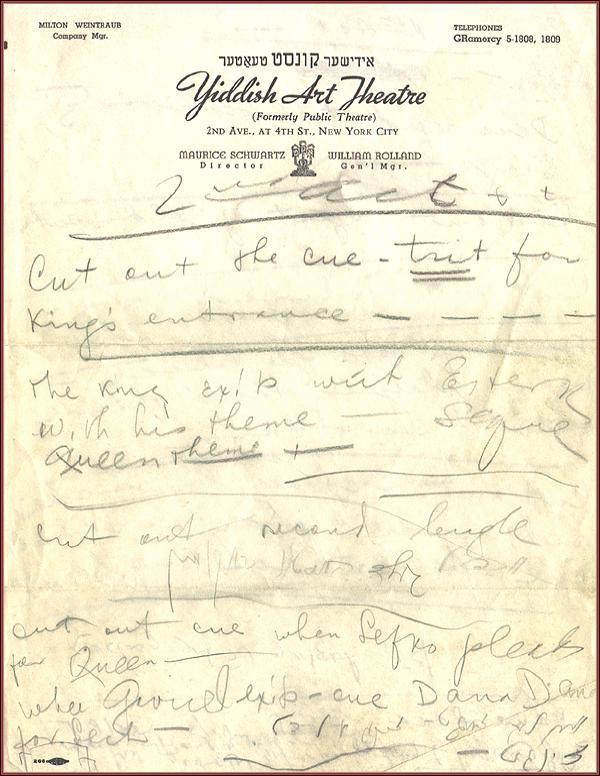 MILTON WEINTRAUB
Company Mgr.
TELEPHONES
GRamercy 5-1808, 1809
אידישער קונסט טעאַטער
Yiddish Art Theatre
(Formerly Public Theatre)
2ND AVE., AT 4TH ST., NEW YORK CITY
MAURICE SCHWARTZ
Director
WILLIAM ROLLAND
Gen'l Mgr.
2nd act + +
Cut out the cue - trit for
King's entrance — — — —
The King exits with Ester
with his theme — Segue
Queen theme + —
cut out second bugle
cut out cue when Sefko pleads
for Queen —
when exit - cue Dana Diana